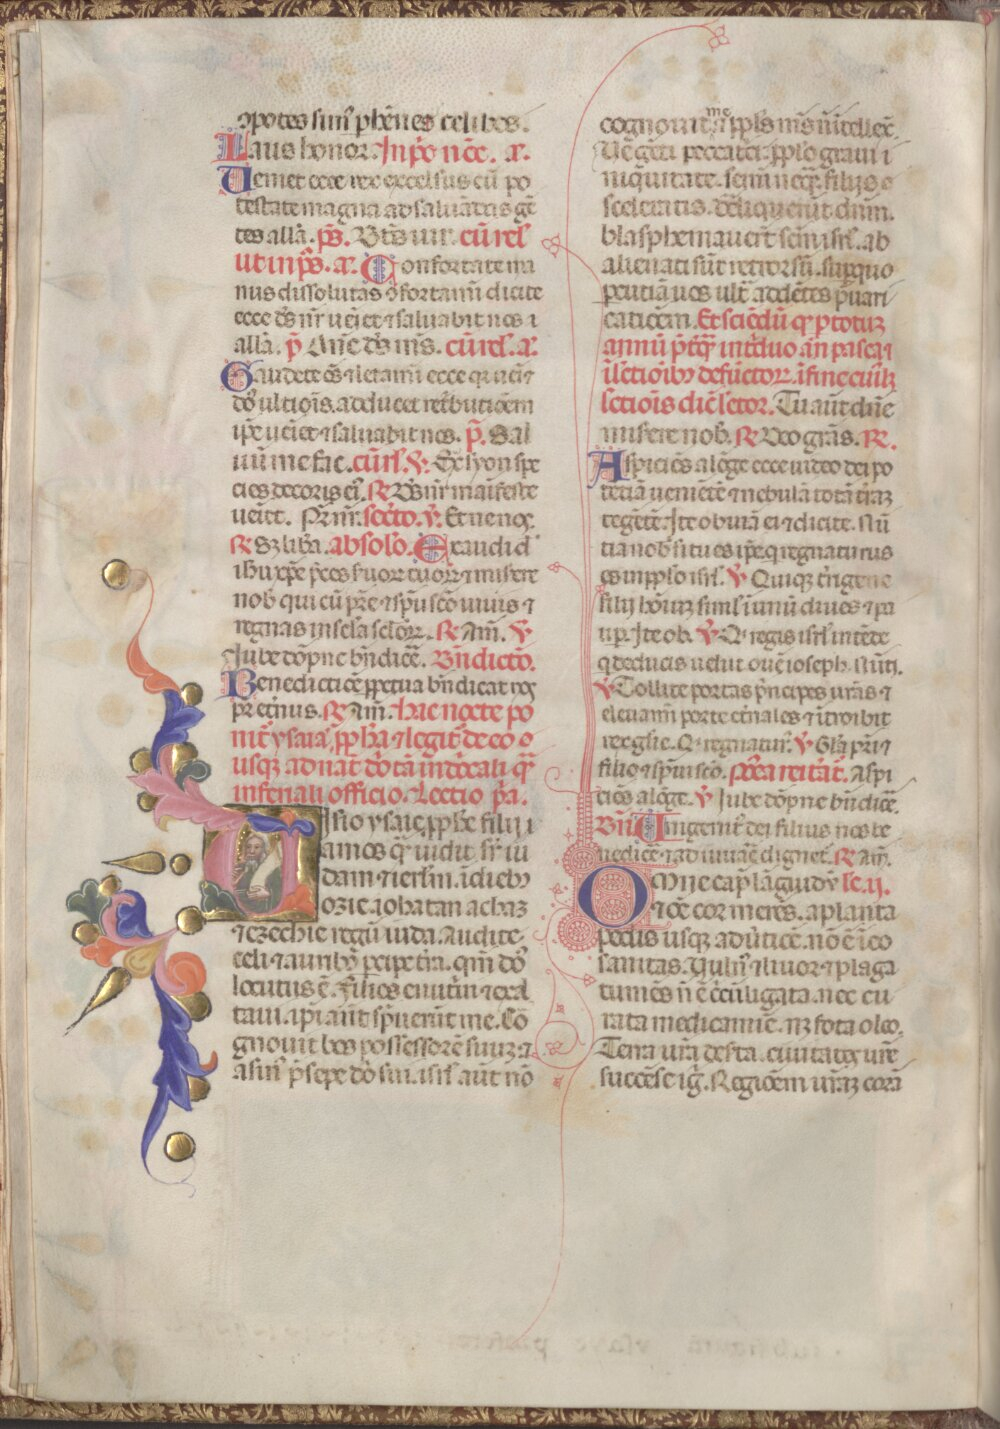 ꝯpotes simꝰ phēnes celibes.
Laus honor. In pº noc̄. a.
Veniet ecce rex excelsus cū po
testate magna ad saluādas gē
tes allā. ps. Bt̄s uir. cū rel̄
ut in ps. a. Confortate ma
nus dissolutas ꝯfortamī dicite
ecce ds̄ nr̄ ueīet ⁊ saluabit nos ⁊
allā. p̄ Dn̄e ds̄ ms. cū rel̄. a.
Gaudete oēs ⁊ letamī ecce qꝛ ueīet
dn̄s ultiōis. adducet retbutiōem
ipē ueīet ⁊ saluabit nos. p̄. Sal
uū me fac. cū rel̄. v̄. Ex syon spe
cies decoris eiꝰ. R Ds̄ nr̄ maīfeste
ueīet. Pr̄ nr̄. sec̄to. v̄. Et ne nos.
R Sz liba. absolō. Exaudi dn̄e
ihu xp̄e p̄ces suoꝝ tuoꝝ ⁊ misere
nob qui cū pr̄e ⁊ spū scō uiuis ⁊
regnas in scl̄a scl̄oꝝ. R Am̄. v̄
Jube dōpne bn̄dicē. Bn̄dictō.
Benedictiōe ppetua bn̄dicat nos
pr̄ et̄nus. R Am̄. hac nocte po
nit̄ ysaīa ppha ⁊ legit̄ de eo o
usqꝫ ad nat̄ dō tā in dōcali qꝫ
inferiali officio. Lectio pª.
Visio ysaie pphe filii
amos qᵃ uidit sr̄ iu
dam ⁊ ierl̄m. ī diebꝫ
ozie. iohatan achaz
⁊ ezechie regū iuda. Audite
celi ⁊ auribꝫ pcipe tr̄a. qm̄ dn̄s
locutus ē. Filios enutiui ⁊ exal
taui. ip̄i aut̄ spuerūt me. Co
gnouit bos possessorē suuꝫ. ⁊
asinꝰ p̄sepe dn̄i sui. isrl̄ aut̄ nō
cognouit me ⁊ ppl̄s ms̄ nō ītellex̄.
Ve gēti peccatⁱci. pplo graui ī
iniquitate. semī nequā. filiis
sceleratis. dēliquerūt dn̄m.
blasphemauerūt sc̄m isrl̄. ab
alienati sūt retrorsū. sup quo
pcutiā uos ult̄ addētes p̄uari
catiōem. Et sciēdū qꝫ p totuꝫ
annū p̄tqꝫ in tⁱduo an̄ pasca ⁊
ī lectioībꝫ defūctoꝝ. ī fine cuiꝰlibꝫ
lectiōis dicēs lector. Tu aut̄ dn̄e
misere nob. R Deo grās. R.
Aspiciēs a lōge ecce uideo dei po
tētiā ueniētē ⁊ nebulā totā tr̄aꝫ
tegētē. Ite obuiā ei ⁊ dicite. Nū
tia nob si tu es ipē q̄ regnaturus
es in pplo isrl̄. v̄ Quiqꝫ t̄rigene ⁊
filij hoīuꝫ siml̄ ī unū diues ⁊ pa
up. Ite ob. v̄ Q regis isrl̄ intēde
q deducis uelut ouē ioseph. Nūti.
v̄ Tollite portas p̄ncipes ur̄as ⁊
eleuamī porte et̄nales ⁊ ītroibit
rex glīe. Q regnaturꝰ. v̄ Glīa pr̄i ⁊
filio ⁊ spūi scō. postea reītāt̄. Aspi
ciēs a lōge. v̄ Jube dōpne bn̄dicē.
Bn̄ Unigenitꝰ dei filius nos be
nedicē ⁊ adiuuaē dignet̄. R Am̄.
Omne cap̄ lāguidū lc̄. ij.
⁊ oē cor merēs. a planta
pedis usqꝫ ad ūticē. nō ē ī eo
sanitas. Vulnꝰ ⁊ liuor ⁊ plaga
tumēs n̄ ē cc̄ūligata. nec cu
rata medicamīe. nꝫ fota oleo.
Terra ur̄a desta. ciuitates ur̄e
succēse igⁱ. Regiōem ur̄aꝫ corā